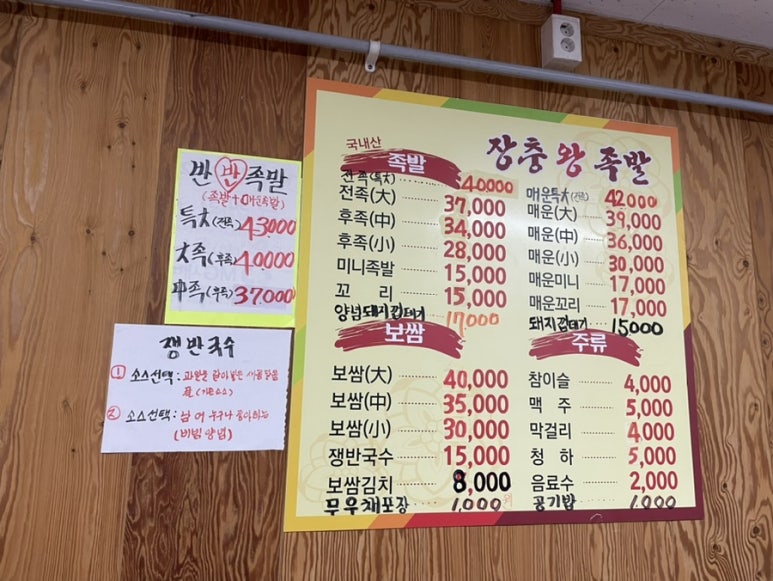 반반족발
(족발+매운족발)
특大(전족) 43,000
大족(후족) 40000
中족(후족) 37.000
쟁반국수
① 소스선택:
(기본소스)
② 소스선택: 남여 누구나 좋아하는
(비빔양념)
국내산
장충왕족발
족발
전족(특大) 40000
전족(大) 37,000
후족(中) 34,000
후족(小) 28,000
미니족발 15,000
꼬리 15,000
양념돼지껍데기 17,000
매운특大(전족) 42000
매운(大) 39,000
매운(中) 36,000
매운(小) 30,000
매운미니 17,000
매운꼬리 17,000
돼지껍데기 15000
보쌈
보쌈(大) 40,000
보쌈(中) 35,000
보쌈(小) 30,000
쟁반국수 15,000
보쌈김치 8,000
무우채포장 1,000원
주류
참이슬 4,000
맥주 5,000
막걸리 4,000
청하 5,000
음료수 2,000
공기밥 1,000